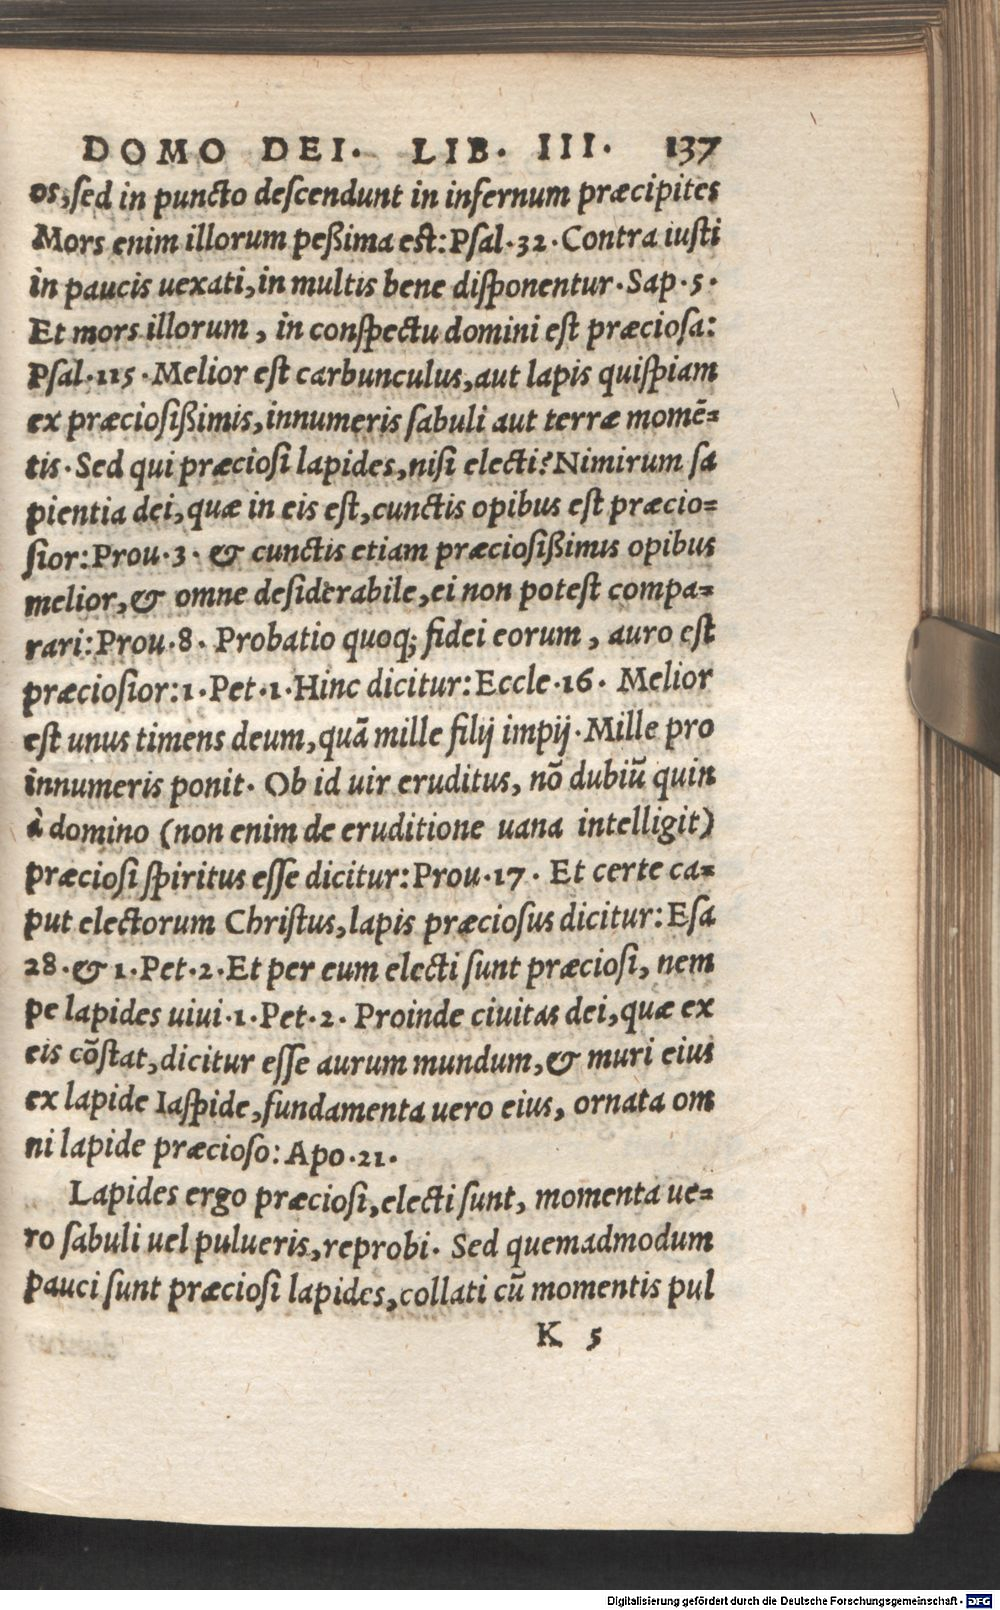 DOMO DEI. LIB. III. 137
os, sed in puncto descendunt in infernum præcipites
Mors enim illorum peßima est: Psal.32. Contra iusti
in paucis uexati, in multis bene disponentur. Sap.5.
Et mors illorum, in conspectu domini est præciosa:
Psal.115. Melior est carbunculus, aut lapis quispiam
ex præciosißimis, innumeris sabuli aut terræ momē=
tis. Sed qui præciosi lapides, nisi electi? Nimirum sa
pientia dei, quæ in eis est, cunctis opibus est præcio=
sior: Prou.3. & cunctis etiam præciosißimis opibus
melior, & omne desiderabile, ei non potest compa=
rari: Prou.8. Probatio quoq; fidei eorum, auro est
præciosior: 1. Pet.1. Hinc dicitur: Eccle.16. Melior
est unus timens deum, quā mille filij impij. Mille pro
innumeris ponit. Ob id uir eruditus, nō dubiū quin
à domino (non enim de eruditione uana intelligit)
præciosi spiritus esse dicitur: Prou.17. Et certe ca=
put electorum Christus, lapis præciosus dicitur: Esa
28. & 1. Pet.2. Et per eum electi sunt præciosi, nem
pe lapides uiui. 1. Pet.2. Proinde ciuitas dei, quæ ex
eis cōstat, dicitur esse aurum mundum, & muri eius
ex lapide Iaspide, fundamenta uero eius, ornata om
ni lapide præcioso: Apo.21.
Lapides ergo præciosi, electi sunt, momenta ue=
ro sabuli uel pulueris, reprobi. Sed quemadmodum
pauci sunt præciosi lapides, collati cū momentis pul
K 5
Digitalisierung gefördert durch die Deutsche Forschungsgemeinschaft - DFG